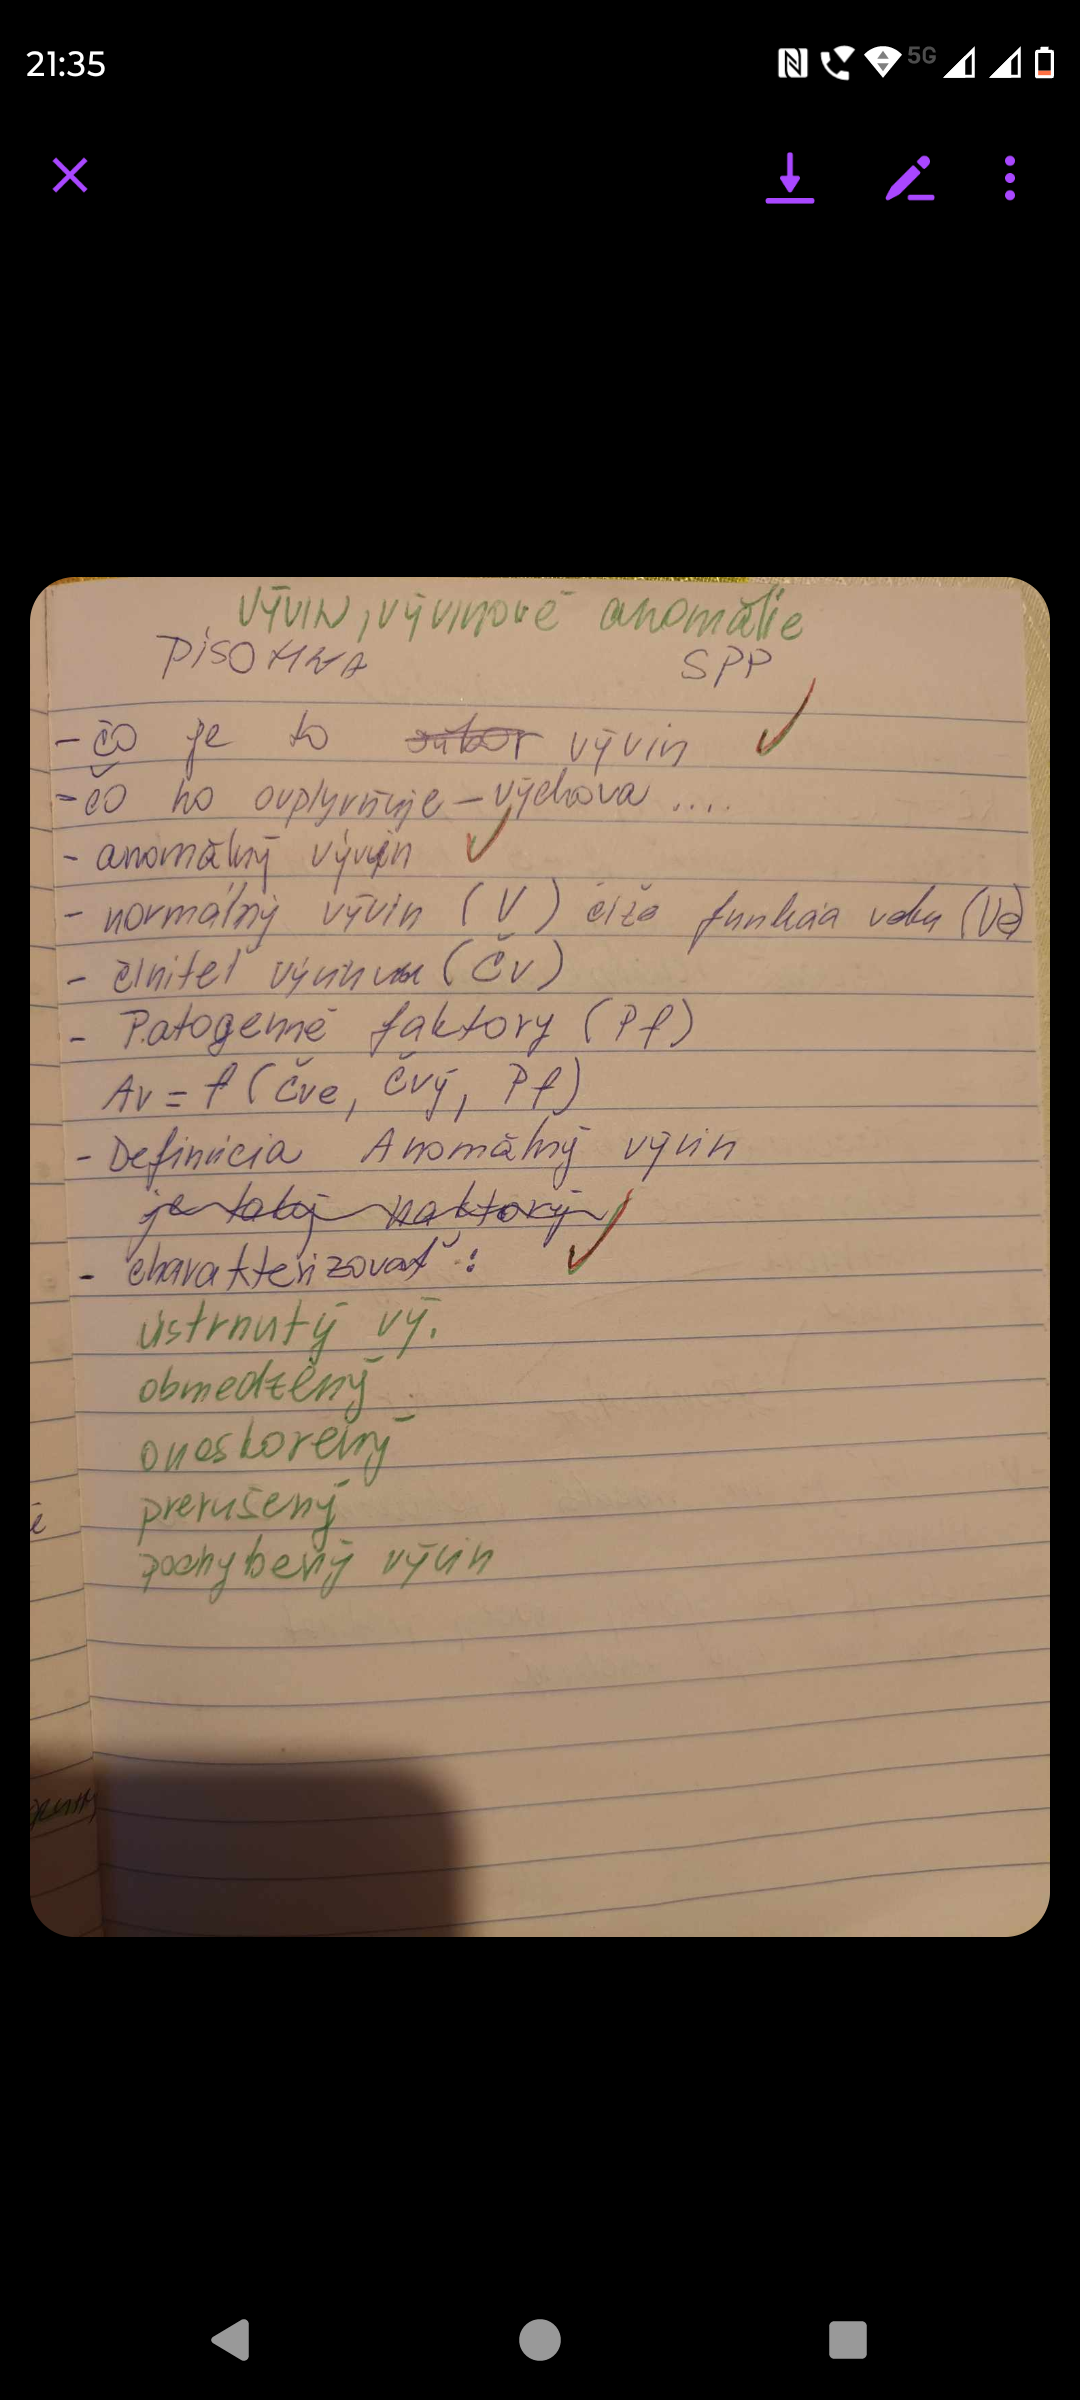 21:35
5G
vývin, vývinové anomálie
Písomka SPP
- čo je to súbor vývin
- čo ho ovplyvňuje - výchova ....
- anomálny vývin
- normálny vývin (V) čiže funkcia veku (Ve)
- činiteľ vývinu (Čv)
- Patogenné faktory (Pf)
Av = f (Čve, Čvý, Pf)
- Definícia Anomálny vývin
je taký na ktorý
- charakterizovať :
ustrnutý vý.
obmedzený
oneskorený
prerušený
pochybený vývin